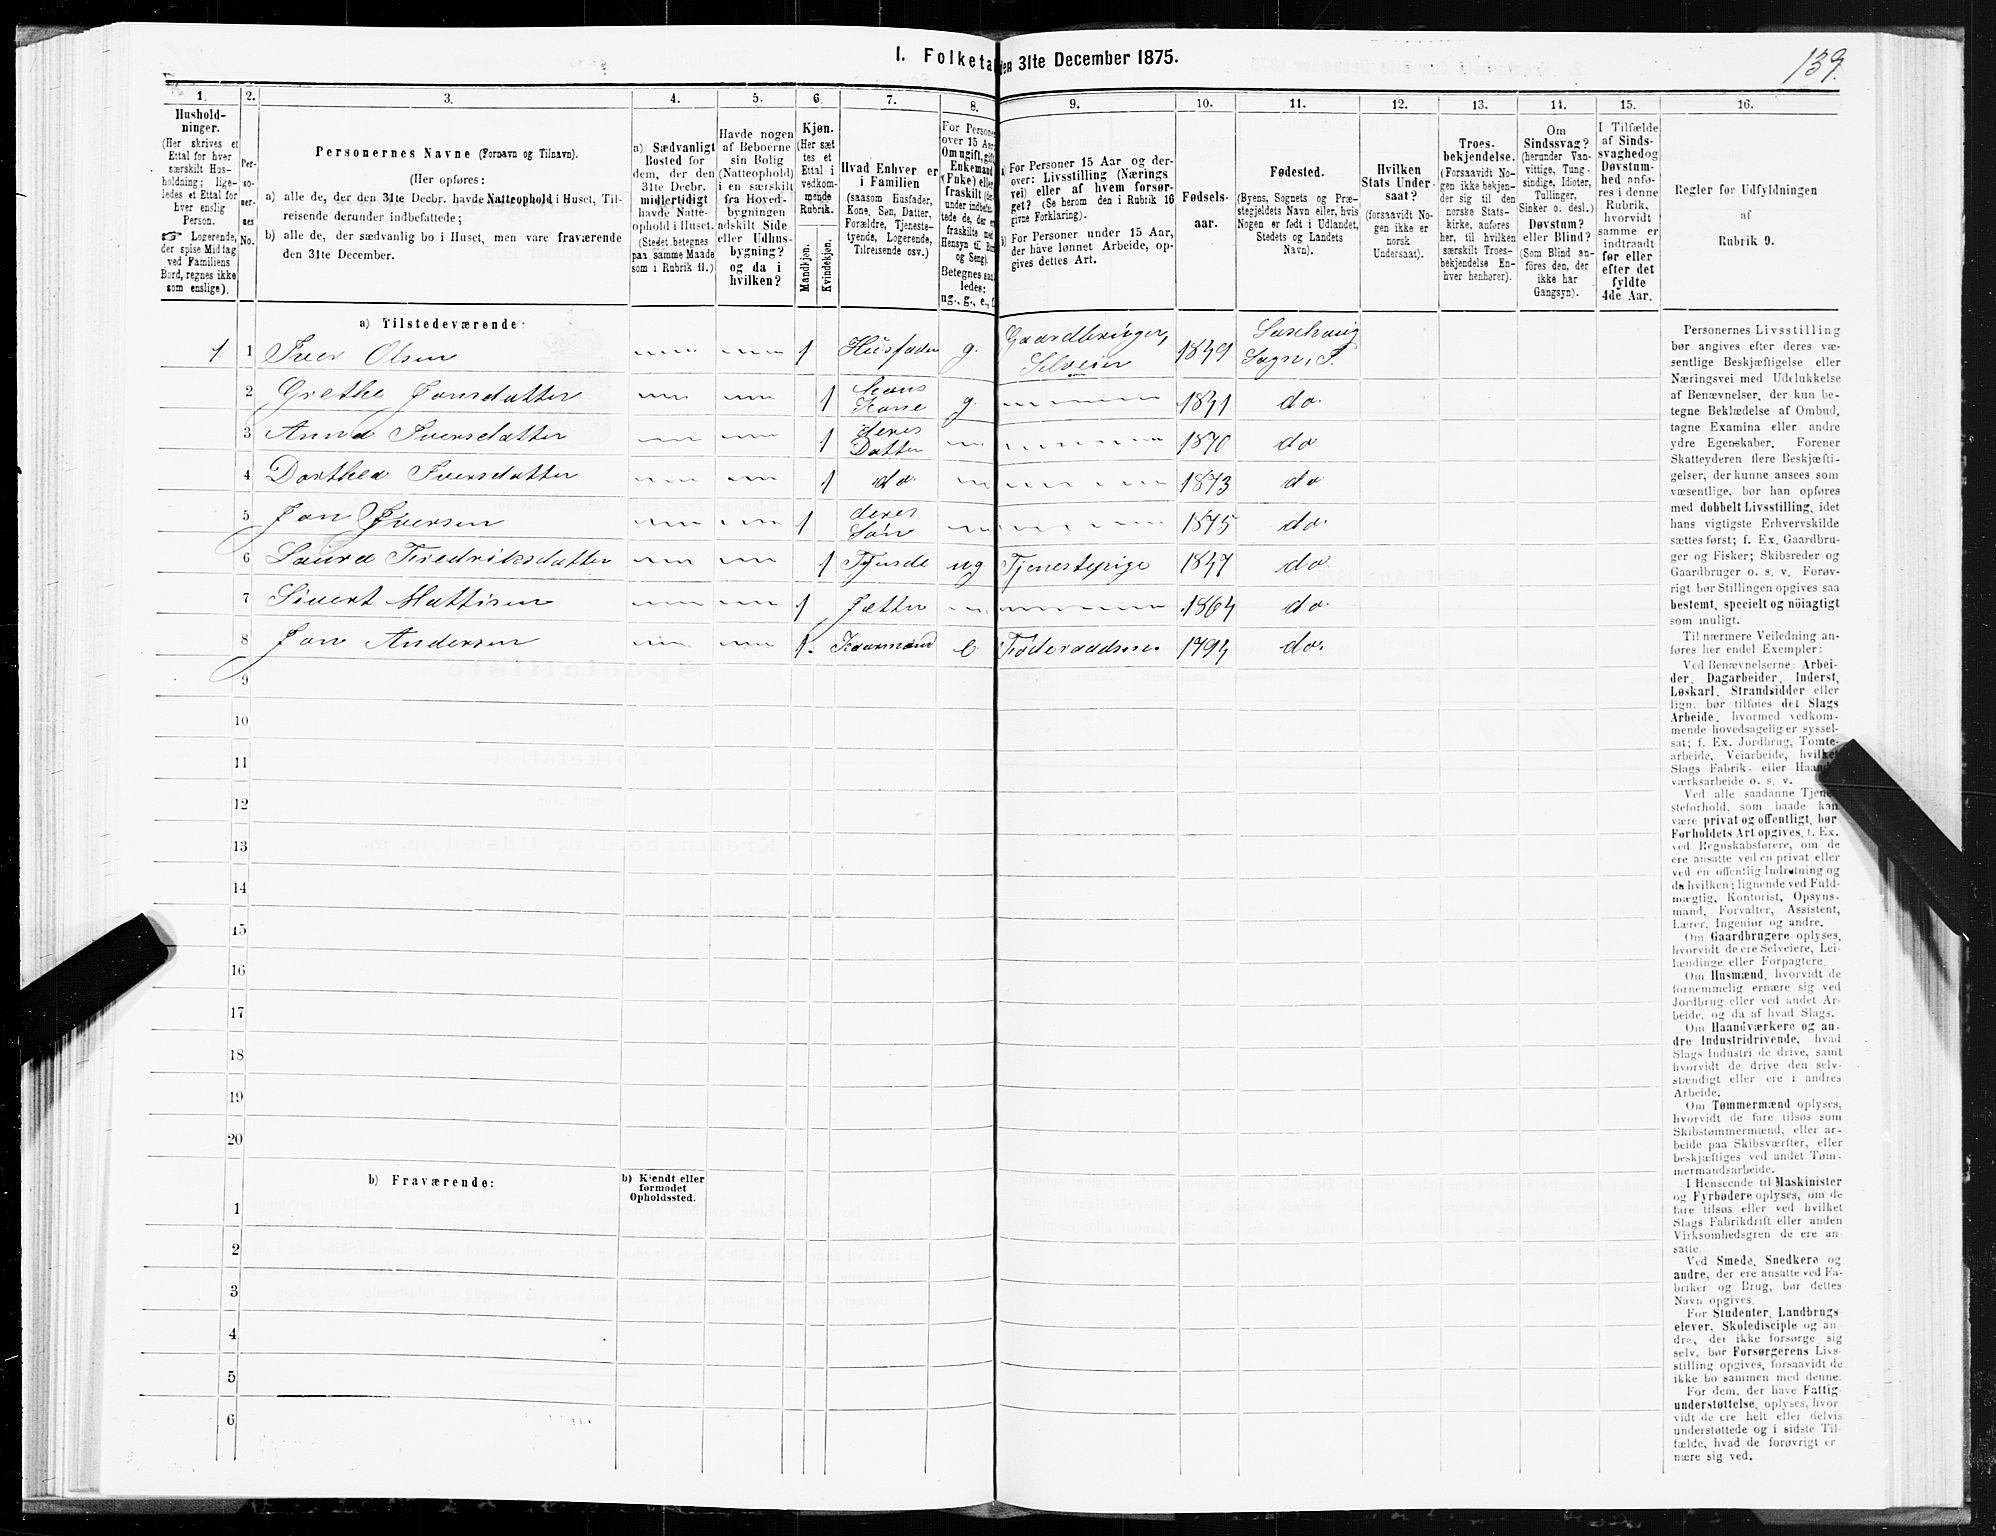 139.
I. Folketal den 31te December 1875.
1. 2. 3. 4. 5. 6. 7. 8. 9. 10. 11. 12. 13. 14. 15. 16.
Hushold-
ninger.
(Her skrives et
Ettal for hver
særskilt Hus-
holdning; lige-
ledes et Ettal for
hver enslig
Person.
☞ Logerende,
der spise Middag
ved Familiens
Bord, regnes ikke
som enslige).
Per-
so-
ner-
nes
No.
Personernes Navne (Fornavn og Tilnavn).
(Her opføres:
a) alle de, der den 31te Decbr. havde Natteophold i Huset, Til-
reisende derunder indbefattede;
b) alle de, der sædvanlig bo i Huset, men vare fraværende
den 31te December.
a) Sædvanligt
Bosted for
dem, der den
31te Decbr.
midlertidigt
havde Natte-
ophold i Huset.
(Stedet betegnes
paa samme Maade
som i Rubrik 11.)
Havde nogen
af Beboerne
sin Bolig
(Natteophold)
i en særskilt
fra Hoved-
bygningen
adskilt Side
eller Udhus-
bygning?
og da i
hvilken?
Kjøn.
(Her sæt
tes et
Ettal i
vedkom-
mende
Rubrik.
Mandkjøn.
Kvindekjøn.
Hvad Enhver er
i Familien
(saasom Husfader,
Kone, Søn, Datter,
Forældre, Tjeneste-
tyende, Logerende,
Tilreisende osv.)
For Persone
over 15 Aar
Om ugift, gift
Enkemand
(Enke) eller
fraskilt
Betegnes saa
ledes:
ug., g., e., f.
a) For Personer 15 Aar og der-
over: Livsstilling (Nærings
vei) eller af hvem forsør-
get? (Se herom den i Rubrik 16
givne Forklaring).
b) For Personer under 15 Aar,
der have lønnet Arbeide, op-
gives dettes Art.
Fødsels-
aar.
Fødested.
(Byens, Sognets og Præ-
stegjeldets Navn eller, hvis
Nogen er født i Udlandet,
Stedets og Landets
Navn).
Hvilken
Stats Under-
saat?
(forsaavidt No-
gen ikke er
norsk
Undersaat).
Troes-
bekjendelse.
(Forsaavidt No-
gen ikke bekjen-
der sig til den
norske Stats-
kirke, anføres
her, til hvilken
særskilt Troes-
bekjendelse En-
hver henhører).
Om
Sindssvag?
(herunder Van-
vittige, Tung-
sindige, Idioter,
Tullinger,
Sinker o. desl.)
Døvstum?
eller Blind?
(Som Blind an-
føres den, der
ikke har
Gangsyn).
I Tilfælde
af Sinds-
svaghed og
Døvstum-
hed anfø-
res i denne
Rubrik,
hvorvidt
samme er
indtraadt
før eller
efter det
fyldte
4de Aar.
Regler for Udfyldningen
af
Rubrik 9.
a) Tilstedeværende:
1 1 Iver Olsen 1 Husfader g. Gaardbruger, Selveier 1849 Sogn, P.
2 Grethe Jonsdatter 1 hans Kone g. 1841 do.
3 Anna Iversdatter 1 deres Datter 1870 do
4 Dorthea Iversdatter 1 do. 1873 do
5 Jon Iversen 1 deres Søn 1875 do.
6 Laura Fredriksdatter 1 Tjende ug Tjenestepige 1847 do.
7 Sivert Mattisen 1 1864 do.
8 Jon Andersen 1. Kaarmand e. Føderaadsm. 1794 do.
9
10
11
12
13
14
15
16
17
18
19
20
b) Fraværende:
b) Kjendt eller
formodet
Opholdssted.
1
2
3
4
5
6
Personernes Livsstilling
bør angives efter deres væ-
sentlige Beskjæftigelse eller
Næringsvei med Udelukkelse
af Benævnelser, der kun be-
tegne Beklædelse af Ombud,
tagne Examina eller andre
ydre Egenskaber. Forener
Skatteyderen flere Beskjæfti-
gelser, der kunne ansees som
væsentlige, bør han opføres
med dobbelt Livsstilling, idet
hans vigtigste Erhvervskilde
sættes først; f. Ex. Gaardbru-
ger og Fisker; Skibsreder og
Gaardbruger o. s. v. Forøv-
rigt bør Stillingen opgives saa
bestemt, specielt og nøiagtigt
som muligt.
Til nærmere Veiledning an-
føres her endel Exempler:
Ved Benævnelserne: Arbei-
der, Dagarbeider, Inderst,
Løskarl, Strandsidder eller
lign. bør tilføies det Slags
Arbeide, hvormed vedkom-
mende hovedsagelig er syssel-
sat; f. Ex. Jordbrug, Tomte-
arbeide, Veiarbeide, hvilket
Slags Fabrik- eller Haand-
værksarbeide o. s. v.
Ved alle saadanne Tjene-
steforhold, som baade kan
være privat og offentligt, bør
Forholdets Art opgives, t. Ex.
ved Regnskabsførere, om de
ere ansatte ved en privat eller
ved en offentlig Indretning og
da hvilken; lignende ved Fuld-
mægtig, Kontorist, Opsyns-
mand, Forvalter, Assistent,
Lærer, Ingeniør og andre.
Om Gaardbrugere oplyses,
hvorvidt de ere Selveiere, Lei-
lændinge eller Forpagtere.
Om Husmænd, hvorvidt de
fornemmelig ernære sig ved
Jordbrug eller ved andet Ar-
beide, og da af hvad Slags.
Om Haandværkere og an-
dre Industridrivende, hvad
Slags Industri de drive, samt
hvorvidt de drive den selv-
stændigt eller ere i andres
Arbeide.
Om Tømmermænd oplyses,
hvorvidt de fare tilsøs som
Skibstømmermænd, eller ar-
beide paa Skibsværfter, eller
beskjæftiges ved andet Tøm-
mermandsarbeide.
I Henseende til Maskinister
og Fyrbødere oplyses, om de
fare tilsøs eller ved hvilket
Slags Fabrikdrift eller anden
Virksomhedsgren de ere an-
satte.
Ved Smede, Snedkere og
andre, der ere ansatte ved Fa-
briker og Brug, bør dettes
Navn opgives.
For Studenter, Landbrugs
elever, Skoledisciple og an-
dre, der ikke forsørge sig
selv, bør Forsørgerens Livs-
stilling opgives, forsaavidt de
ikke bo sammen med denne.
For dem, der have Fattig
understøttelse, oplyses, hvor
vidt de ere helt eller delvis
understøttede og i sidste Til-
fælde, hvad de forøvrigt er
nære sig ved.